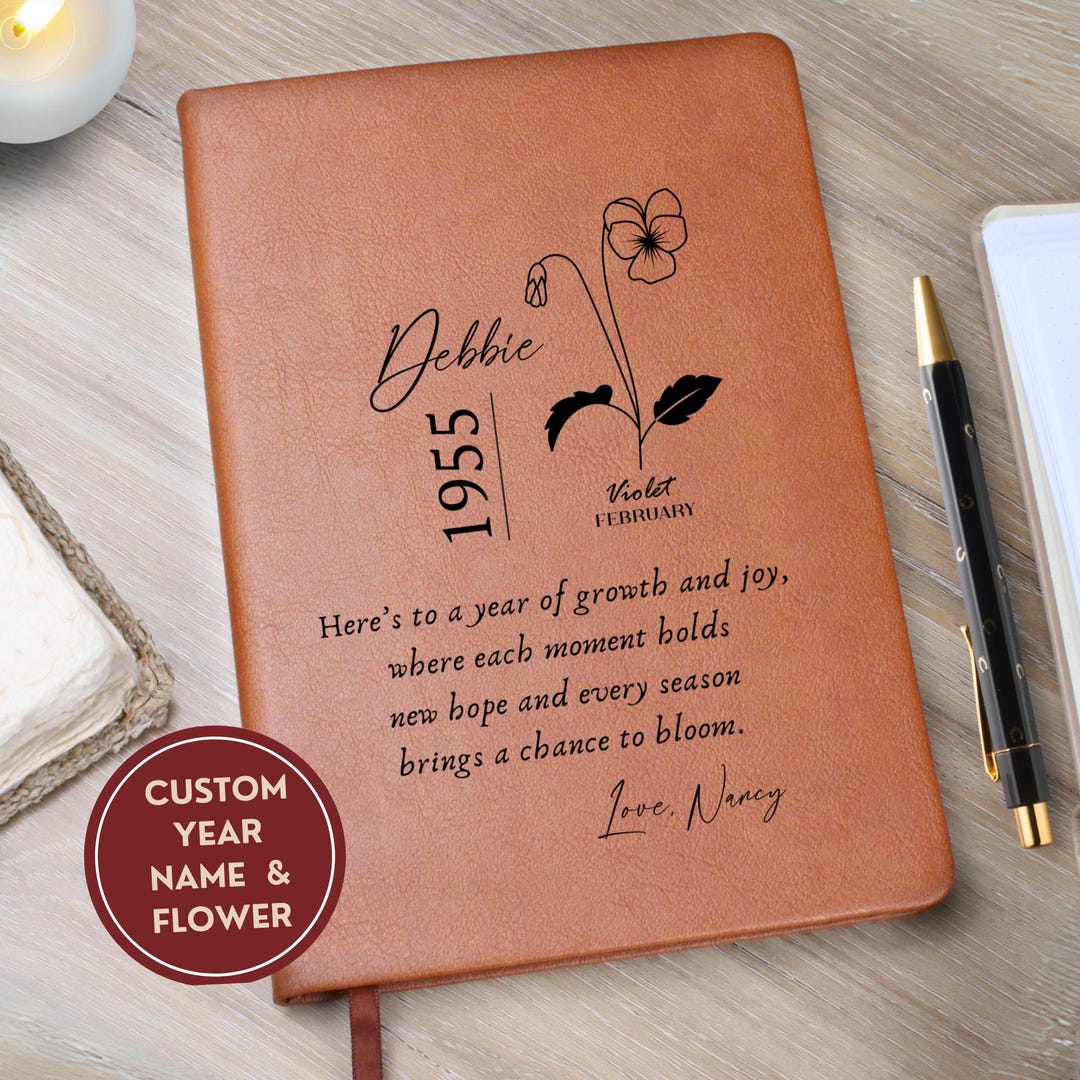 Debbie
1955
Violet
FEBRUARY
Here's to a year of growth and joy,
where each moment holds
new hope and every season
brings a chance to bloom.
Love, Nancy
CUSTOM
YEAR
NAME &
FLOWER